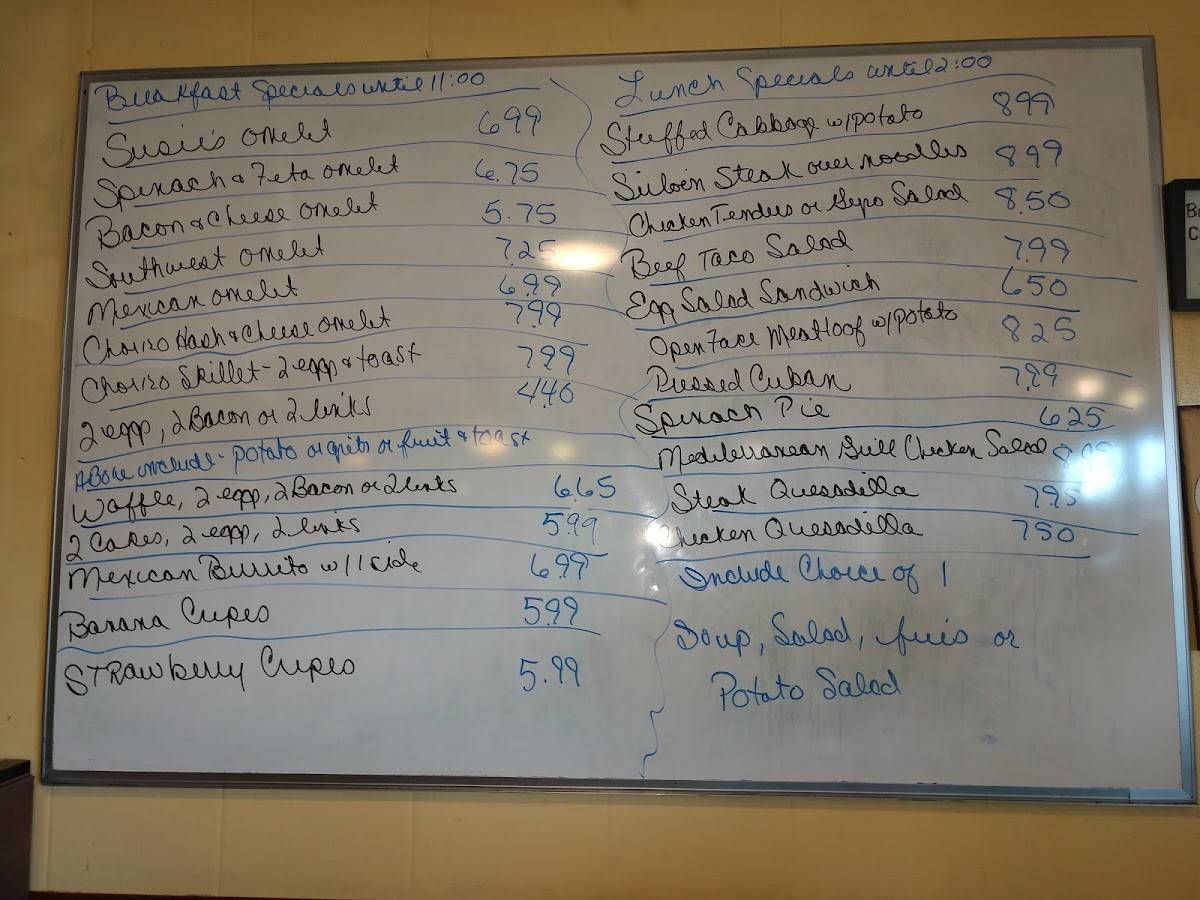 Breakfast Specials until 11:00
Susie's omelet 6.99
Spinach & Feta omelet 6.75
Bacon & Cheese omelet 5.75
Southwest omelet 7.25
Mexican omelet 6.99
Chorizo Hash & Cheese omelet 7.99
Chorizo Skillet - 2 egg & toast 7.99
2 egg, 2 Bacon or 2 links 4.40
Above include - potato or grits or fruit & toast
Waffle, 2 egg, 2 Bacon or 2 links 6.65
2 Cakes, 2 egg, 2 links 5.99
Mexican Burrito w/1 side 6.99
Banana Crepes 5.99
STRawberry Crepes 5.99
Lunch Specials until 2:00
Stuffed Cabbage w/potato 8.99
Sirloin Steak over noodles 8.99
Chicken Tenders or Gyro Salad 8.50
Beef Taco Salad 7.99
Egg Salad Sandwich 6.50
Open Face Meatloaf w/potato 8.25
Pressed Cuban 7.99
Spinach Pie 6.25
Mediterranean Grill Chicken Salad
Steak Quesadilla 7.95
Chicken Quesadilla 7.50
Include Choice of 1
Soup, Salad, fries or
Potato Salad